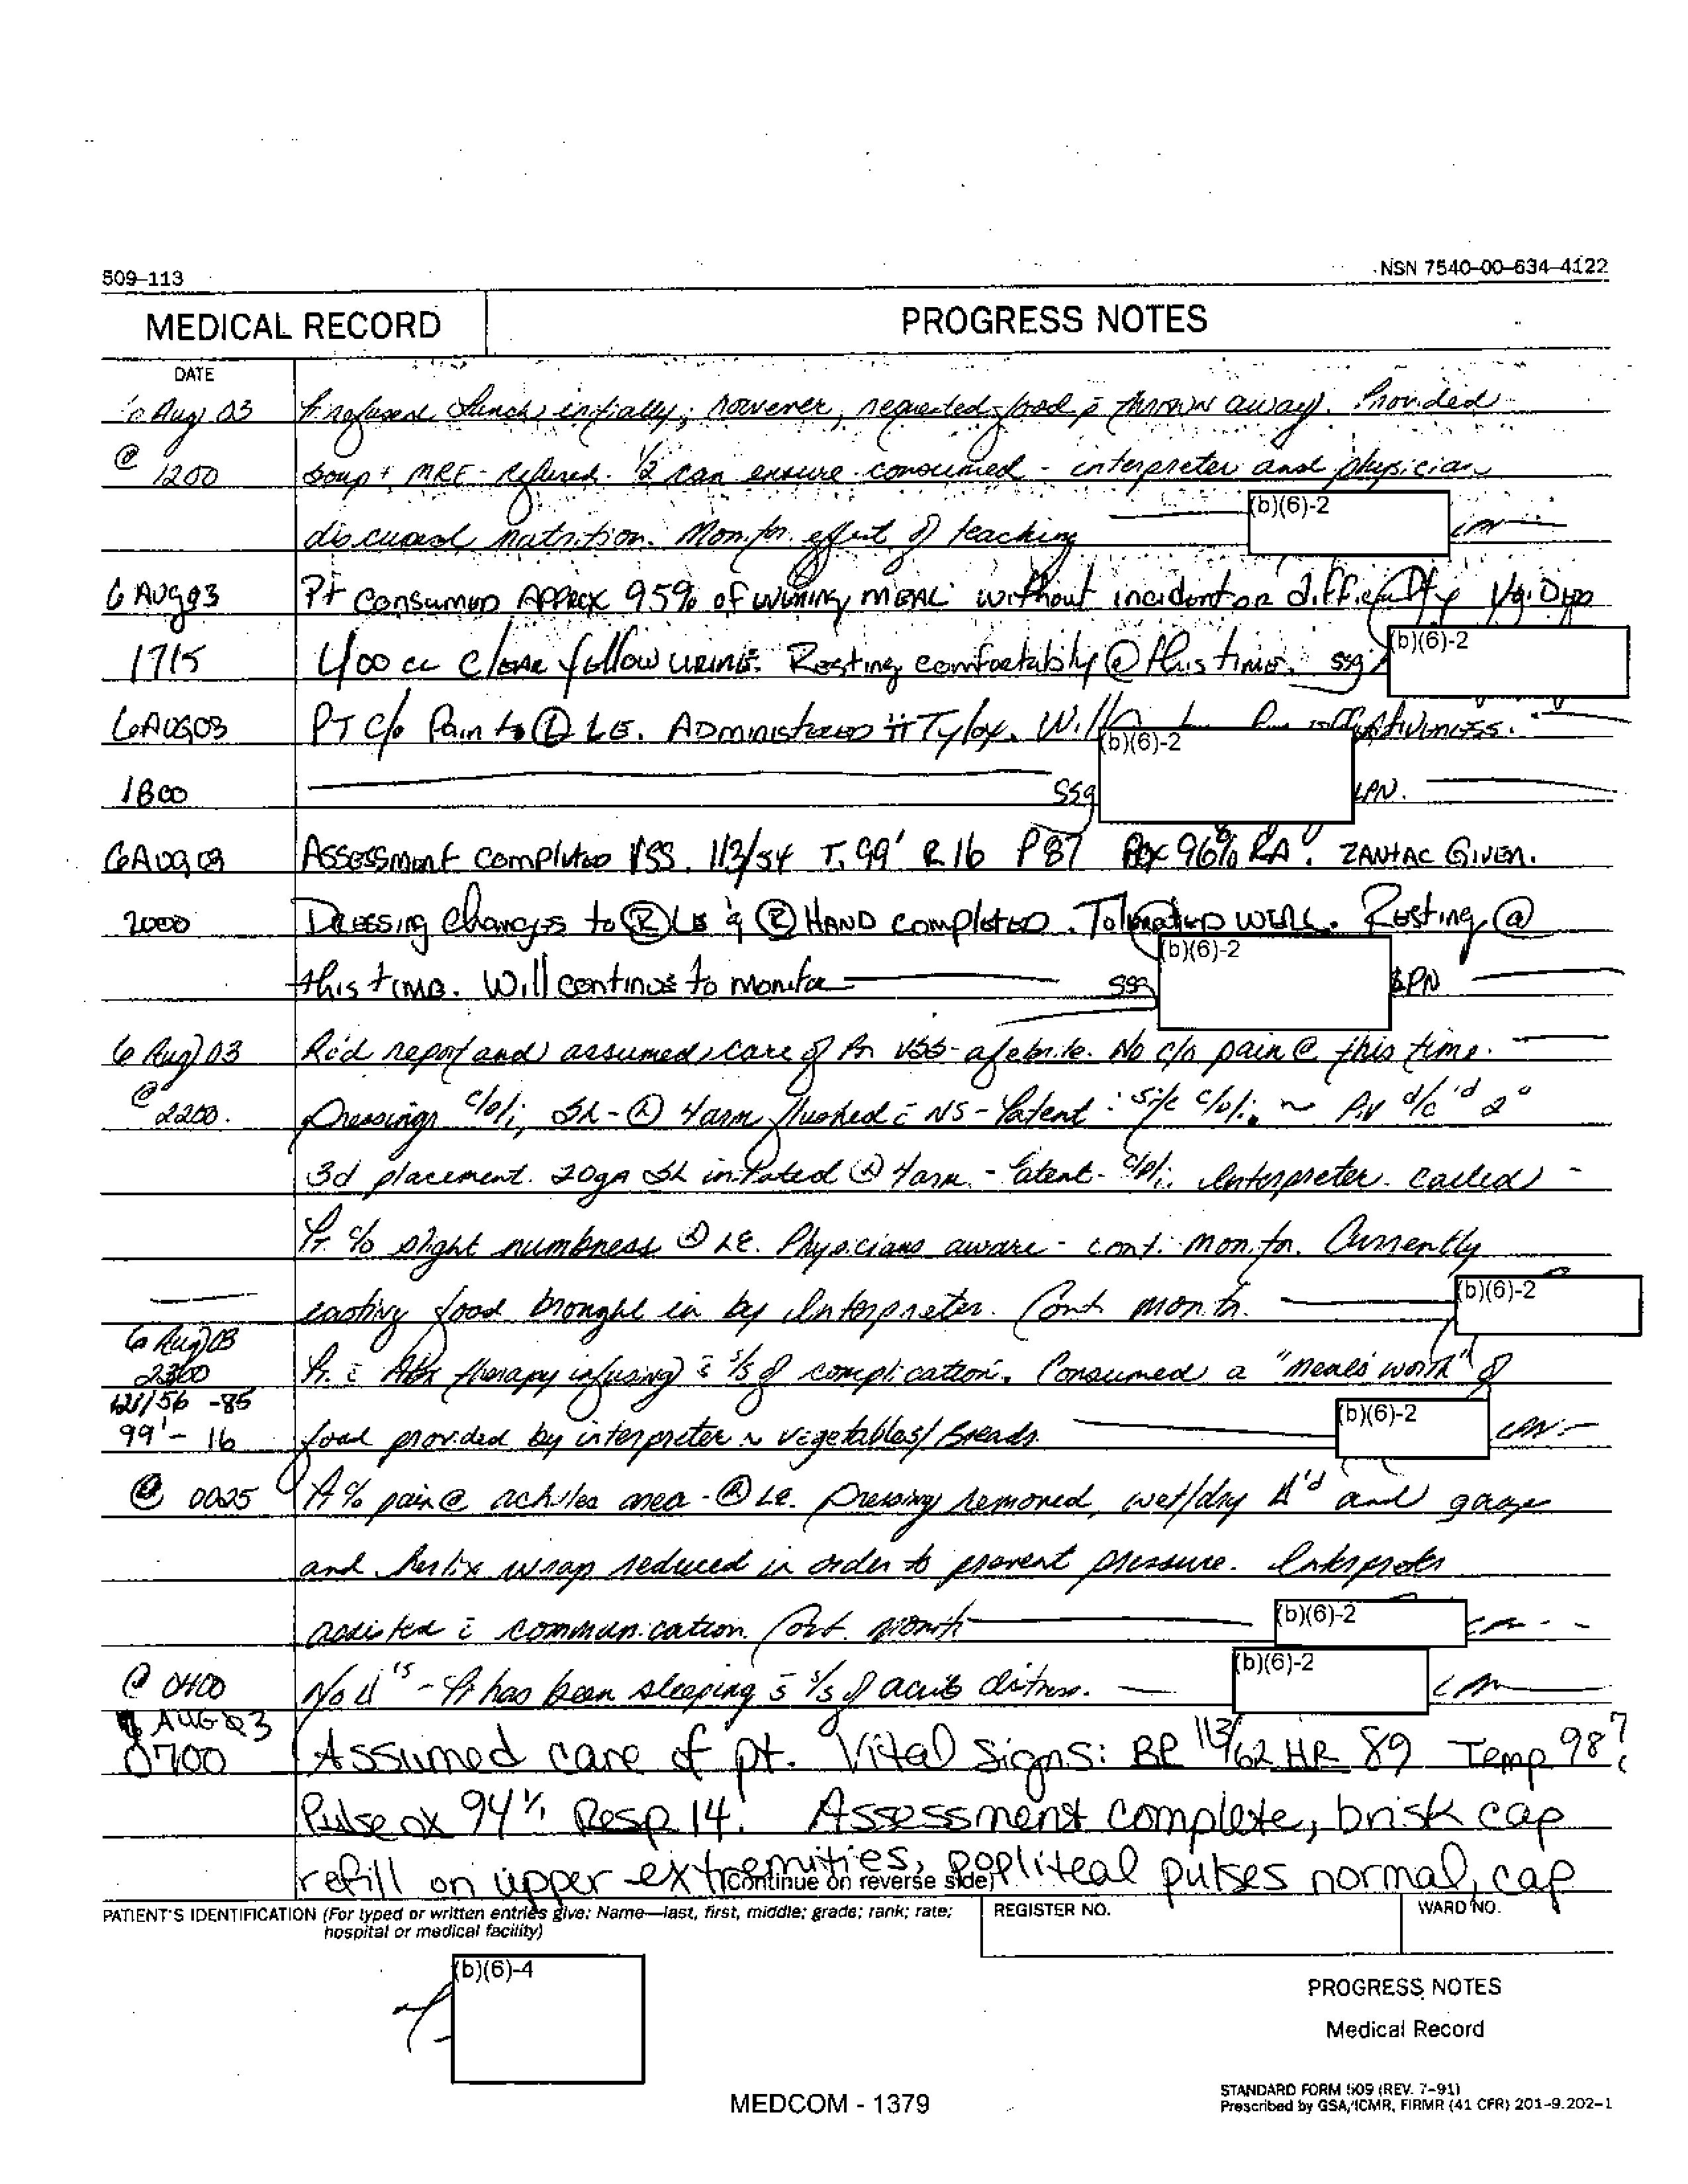 509-113
NSN 7540-00-634-4122
MEDICAL RECORD
PROGRESS NOTES
DATE
6 Aug 03 Pt refused lunch initially; however, requested food p̄ thrown away. Provided
@ 1200 soup + MRE - refused. 1/2 can ensure consumed - interpreter and physician
discussed nutrition. Monitor effect of teaching
(b)(6)-2
6 AUG 03 Pt consumed APPROX 95% of evening MEAL without incident or difficulty
1715 400 cc clear yellow urine. Resting comfortably @ this time. SSg
(b)(6)-2
6 AUG 03 PT c/o Pain to Ⓛ LE. ADMINISTERED ii Tylox. Will
(b)(6)-2
1800 SSg LPN.
6 AUG 03 Assessment completed VSS. 113/54 T. 99¹ R 16 P 87 POX 96% RA. ZANTAC GIVEN.
2000 Dressing changes to Ⓡ LE & Ⓡ HAND completed. Tolerated WELL. Resting @
(b)(6)-2
this time. Will continue to monitor SSg LPN
6 Aug 03 Rc'd report and assumed care of Pt. VSS - afebrile. No c/o pain @ this time.
@ 2200. Dressings c/d/i, SL - flushed c̄ NS - Patent: site c/d/i. ~ PIV d/c'd 2°
3d placement. 20ga SL initiated - Patent - c/d/i. Interpreter called -
Pt. c/o slight numbness LE. Physicians aware - cont. monitor. Currently
eating food brought in by interpreter. Cont monitor.
(b)(6)-2
6 Aug 03
2300 Pt. c̄ Abx therapy infusing s̄ s/s of complication. Consumed a "meals worth" of
121/56 -85
(b)(6)-2
99¹ - 16 food provided by interpreter ~ vegetables/Breads.
@ 0025 Pt c/o pain @ achilles area - Ⓡ LE. Dressing removed, wet/dry Δ'd and gauze
and kerlix wrap reduced in order to prevent pressure. Interpreter
assisted c̄ communication. Cont. monitor
(b)(6)-2
(b)(6)-2
@ 0400 No Δ's - Pt has been sleeping s̄ s/s of acute distress.
AUG 03
0700 Assumed care of pt. Vital Signs: BP 113/62 HR 89 Temp 98⁷
Pulse ox 94% Resp 14. Assessment complete, brisk cap
refill on upper extremities, popliteal pulses normal, cap
(Continue on reverse side)
PATIENT'S IDENTIFICATION (For typed or written entries give: Name—last, first, middle; grade; rank; rate;
hospital or medical facility)
REGISTER NO.
WARD NO.
(b)(6)-4
PROGRESS NOTES
Medical Record
STANDARD FORM 509 (REV. 7-91)
Prescribed by GSA/ICMR, FIRMR (41 CFR) 201-9.202-1
MEDCOM - 1379